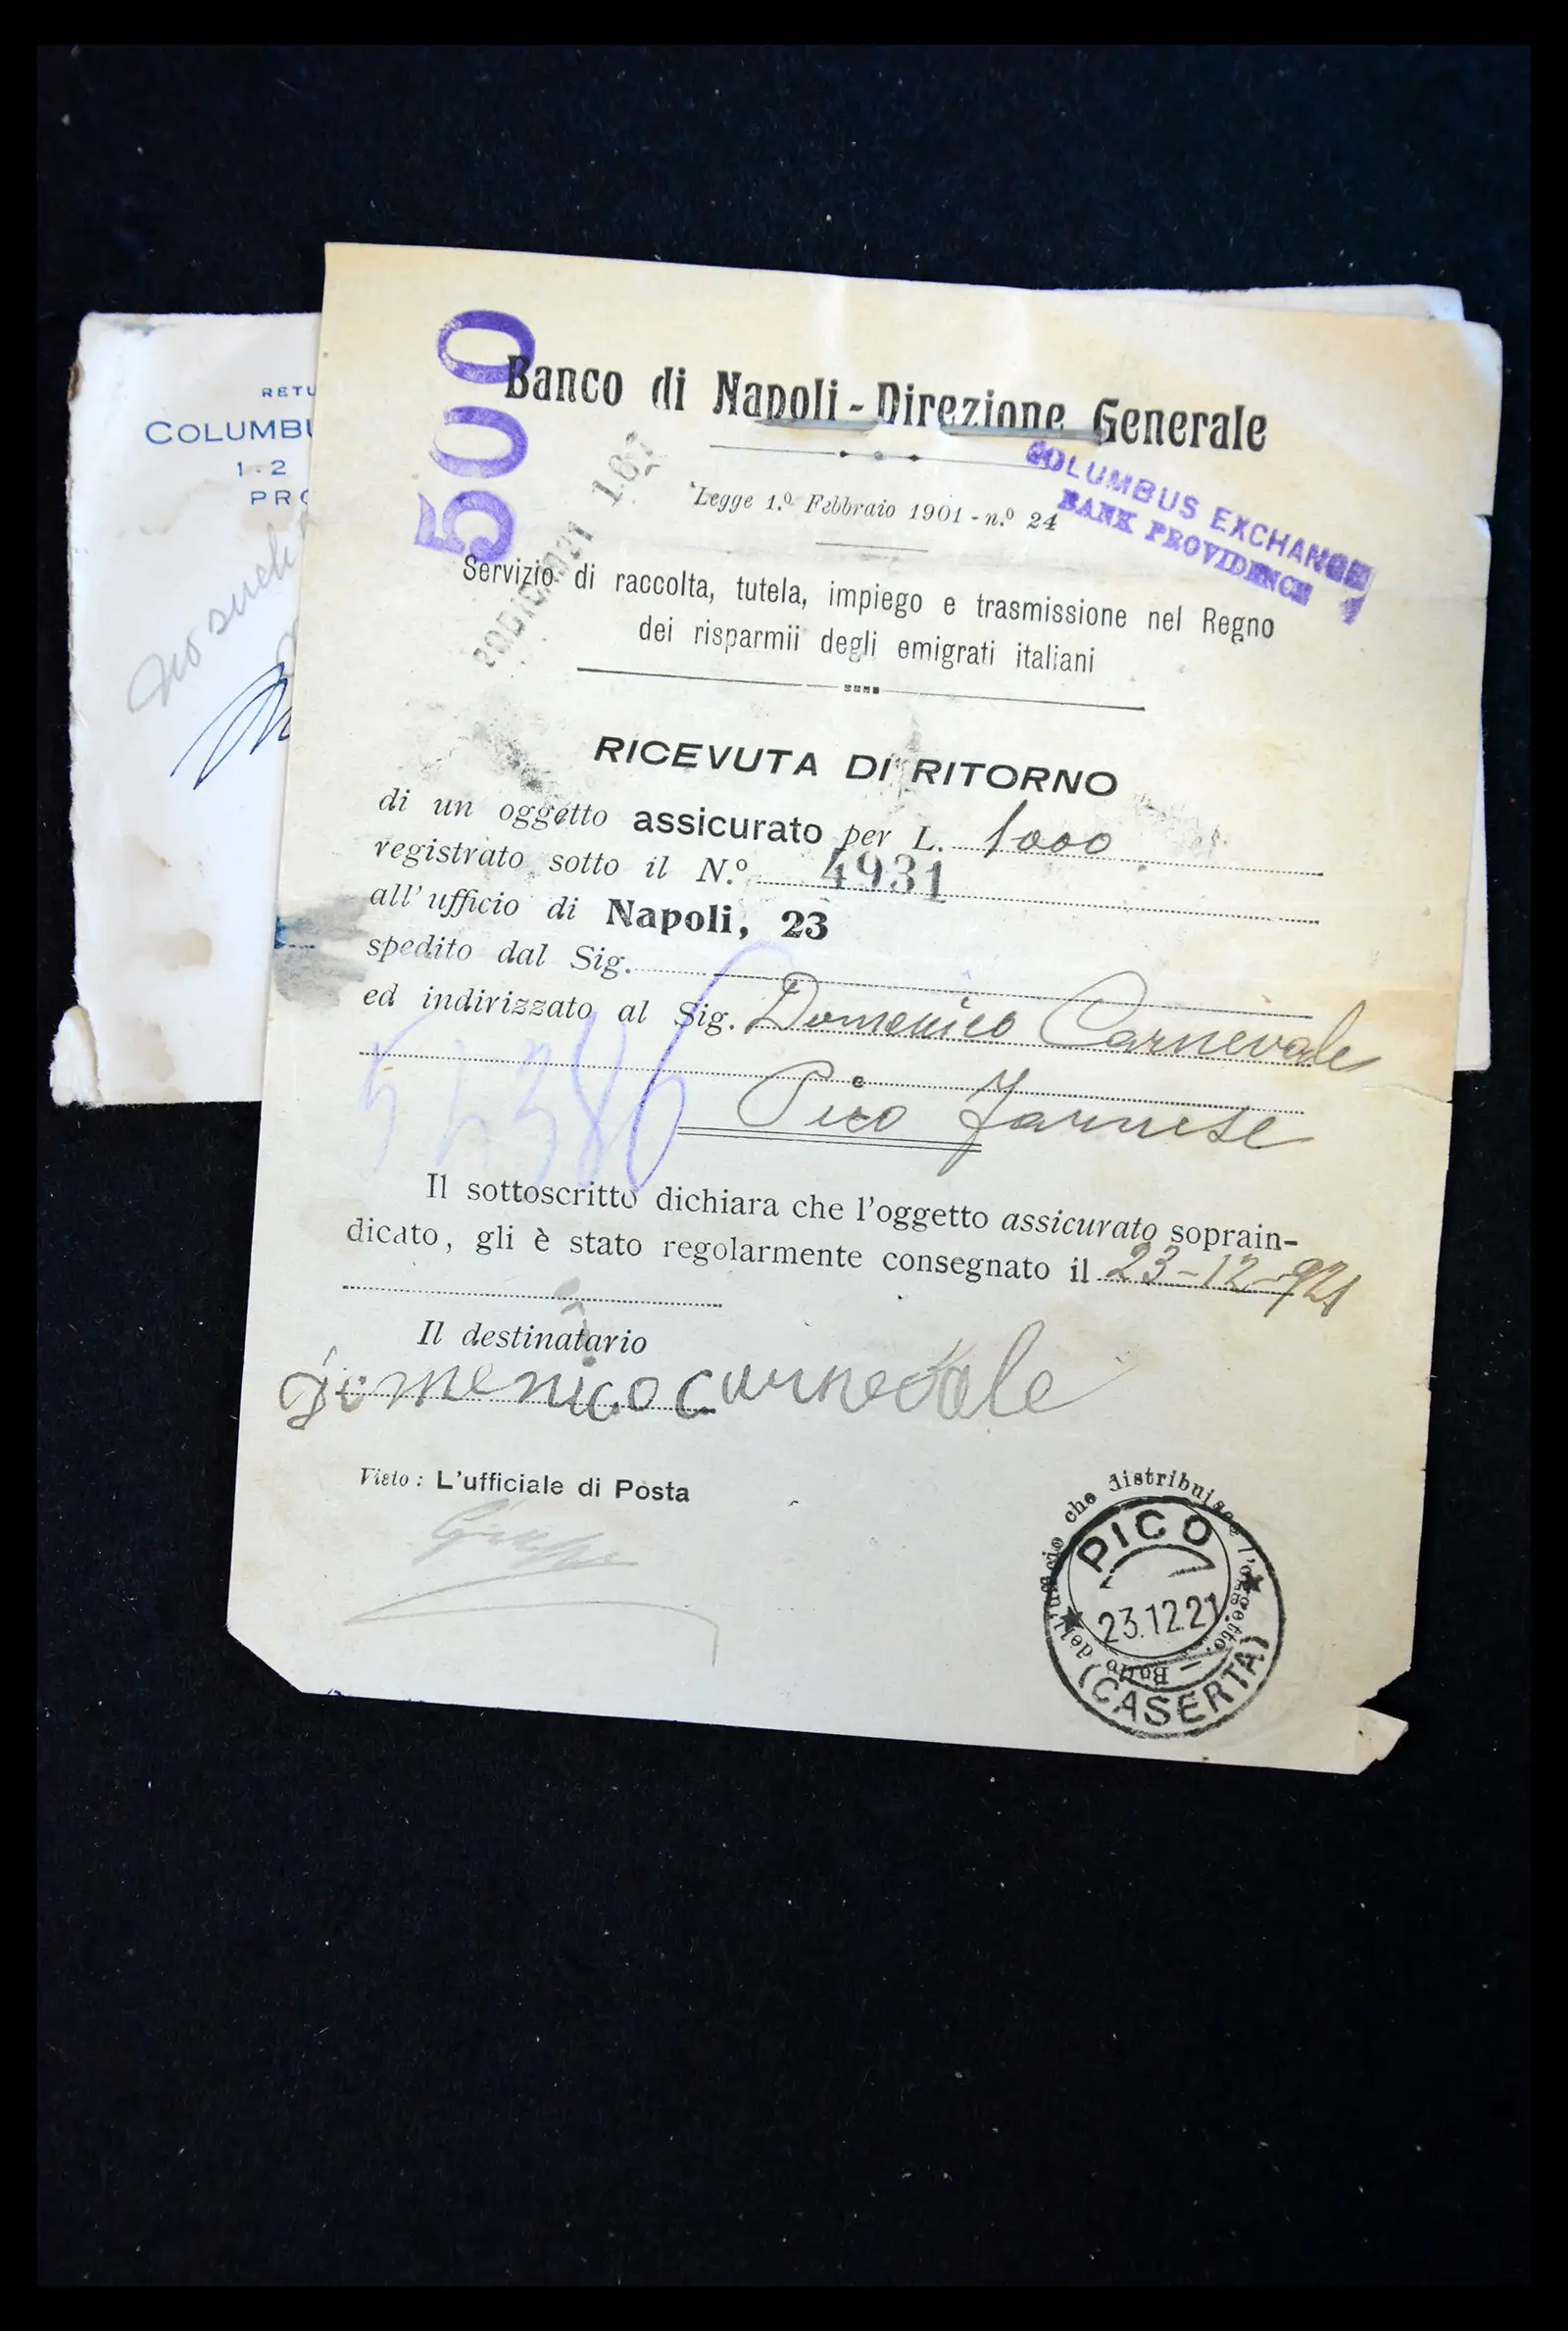 RETU
COLUMBU
1-2
PRO
500
Banco di Napoli - Direzione Generale
COLUMBUS EXCHANGE
BANK PROVIDENCE
Legge 1.º Febbraio 1901 - n.º 24
Servizio di raccolta, tutela, impiego e trasmissione nel Regno
dei risparmii degli emigrati italiani
RICEVUTA DI RITORNO
di un oggetto assicurato per L. 1000
registrato sotto il N.º 4931
all'ufficio di Napoli, 23
spedito dal Sig.
ed indirizzato al Sig. Domenico Carnevale
Pico Farnese
Il sottoscritto dichiara che l'oggetto assicurato soprain-
dicato, gli è stato regolarmente consegnato il 23-12-921
Il destinatario
domenico carnevale
Visto: L'ufficiale di Posta
Bollo dell'ufficio che distribuisce l'oggetto.
PICO
23.12.21
(CASERTA)